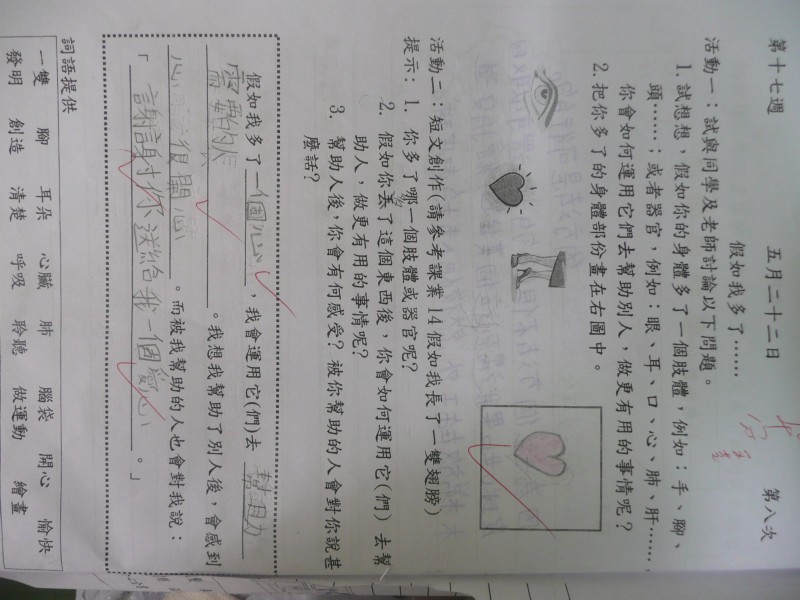 第十七週　五月二十二日　第八次
假如我多了……
活動一：試與同學及老師討論以下問題。
1. 試想想，假如你的身體多了一個肢體，例如：手、腳、
頭……；或者器官，例如：眼、耳、口、心、肺、肝……
你會如何運用它們去幫助別人，做更有用的事情呢？
2. 把你多了的身體部份畫在右圖中。
活動二：短文創作(請參考課業14假如我長了一雙翅膀)
提示：1. 你多了哪一個肢體或器官呢？
2. 假如你丟了這個東西後，你會如何運用它(們)去幫
助人，做更有用的事情呢？
3. 幫助人後，你會有何感受？被你幫助的人會對你說甚
麼話？
假如我多了一個心，我會運用它(們)去幫助
需要的人。我想我幫助了別人後，會感到
心很開心。而被我幫助的人也會對我說：
「謝謝你送給我一個愛心。」
詞語提供
一雙　腳　耳朵　心臟　肺　腦袋　開心　愉快
發明　創造　清楚　呼吸　聆聽　做運動　繪畫